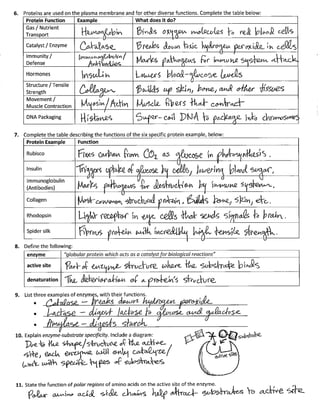 6. Proteins are used on the plasma membrane and for other diverse functions. Complete the table below:
Protein Function Example What does it do?
Gas / Nutrient Transport Hemoglobin Binds oxygen molecules to red blood cells
Catalyst / Enzyme Catalase Breaks down toxic hydrogen peroxide in cells
Immunity / Defense Immunoglobulin/ Antibodies Marks pathogens for immune system attack
Hormones Insulin Lowers blood-glucose levels
Structure / Tensile Strength Collagen Builds up skin, bone, and other tissues
Movement / Muscle Contraction Myosin/Actin Muscle fibers that contract
DNA Packaging Histones Super-coil DNA to package into chromosomes
7. Complete the table describing the functions of the six specific protein example, below:
Protein Example Function
Rubisco Fixes carbon from CO₂ as glucose in photosynthesis.
Insulin Triggers uptake of glucose by cells, lowering blood sugar.
Immunoglobulin (Antibodies) Marks pathogens for destruction by immune system.
Collagen Most common structural protein. Builds bone, skin, etc.
Rhodopsin Light receptor in eye cells that sends signals to brain.
Spider silk Fibrous protein with incredibly high tensile strength.
8. Define the following:
enzyme "globular protein which acts as a catalyst for biological reactions"
active site Part of enzyme structure where the substrate binds
denaturation The deterioration of a protein's structure.
9. List three examples of enzymes, with their functions.
• Catalase - breaks down hydrogen peroxide
• Lactase - digest lactose to glucose and galactose
• Amylase - digests starch
10. Explain enzyme-substrate specificity. Include a diagram:
Due to the shape/structure of the active
site, each enzyme will only catalyze/
work with specific types of substrates
substrate
active site
11. State the function of polar regions of amino acids on the active site of the enzyme.
Polar amino acid side chains help attract substrates to active site.